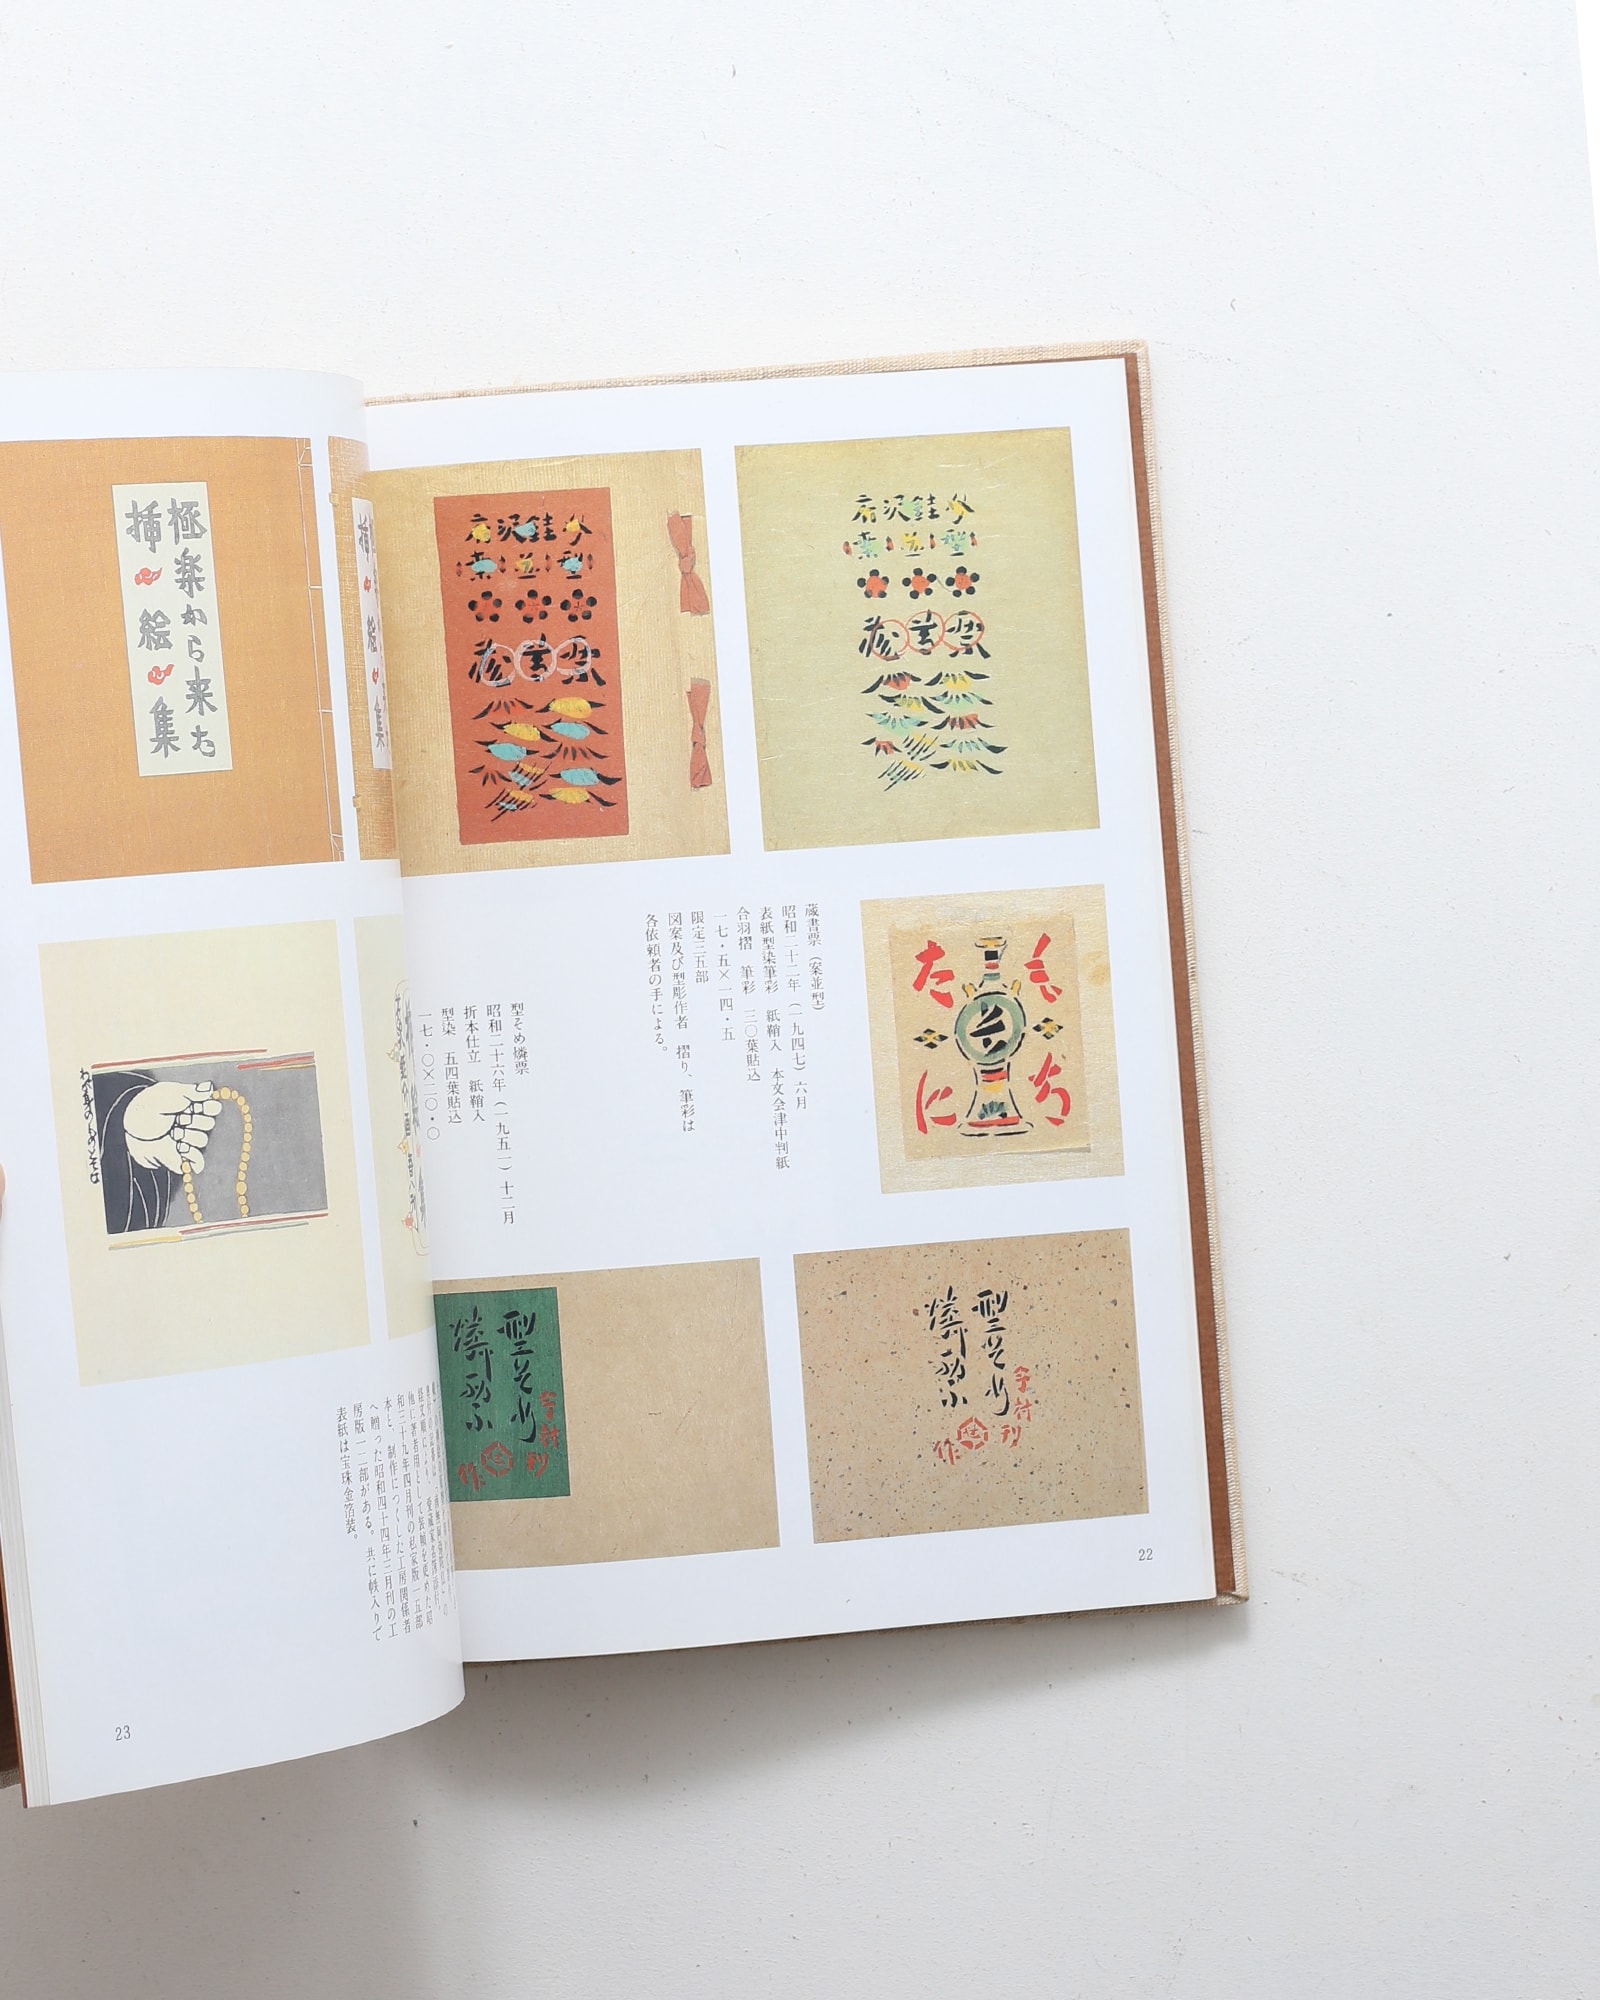 芹沢銈介
案並型
蔵書票
蔵書票（案並型）
昭和二十二年（一九四七）六月
表紙型染筆彩　紙鞘入　本文会津中判紙
合羽摺　筆彩　三〇葉貼込
一七・五×一四・五
限定三五部
図案及び型彫作者　摺り、筆彩は
各依頼者の手による。
型そめ燐票
昭和二十六年（一九五一）十二月
折本仕立　紙鞘入
型染　五四葉貼込
一七・〇×二〇・〇
型そめ
燐票
22
極楽から来た
挿絵集
わが身のあとそは
他に著者用として装幀を更めた昭
和三十九年四月刊の私家版一五部
本と、制作につくした工房関係者
へ贈った昭和四十四年三月刊の工
房版一二部がある。共に帙入りで
表紙は宝珠金箔装。
23